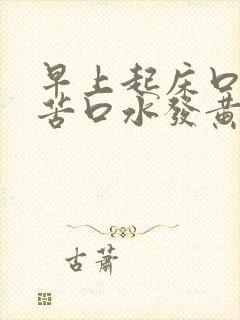 早上起床口
苦口水發黃
古蕭